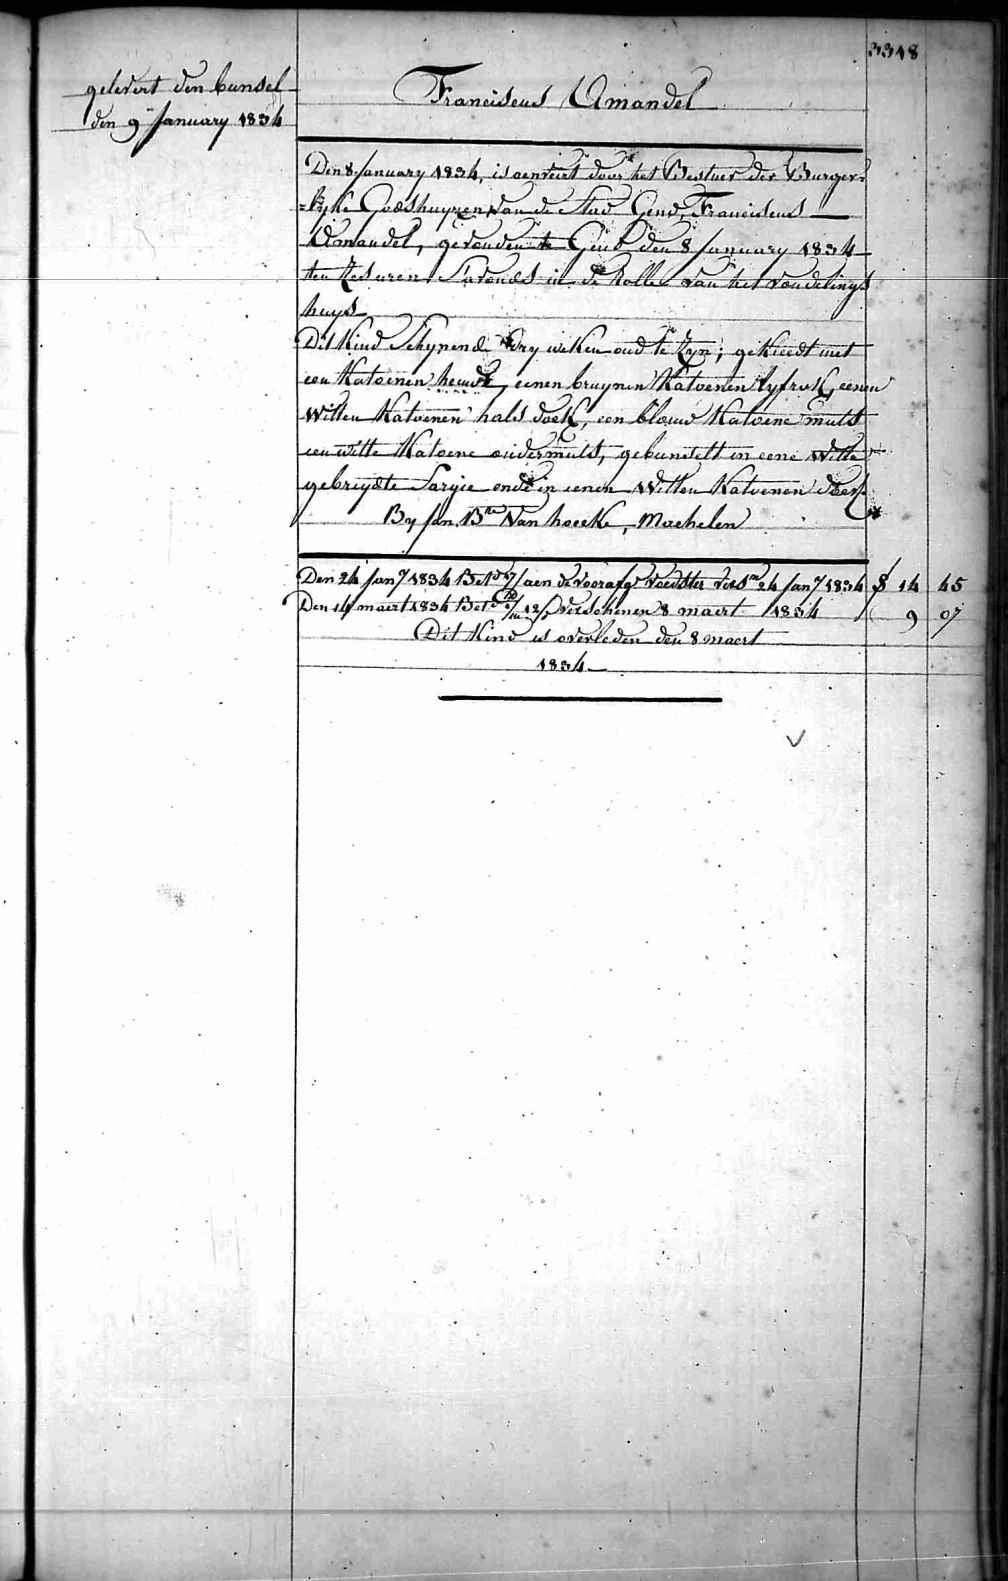 3348
gelevert den bunsel
den 9 January 1834
Franciscus Amandel
Den 8 January 1834, is aenveirt door het Bestuer der Burger=
=lyke Godshuyzen van de Stad Gend, Franciscus
Amandel, gevonden te Gend den 8 January 1834
ten zes uren S'avonds in de rolle van het vondelings
huys
Dit Kind Schynende dry weken oud te zyn; gekleedt met
een Katoenen hemde, eenen bruynen Katoenen lyfrok, eenen
witten Katoenen hals doek, een blauw Katoene muts
een witte Katoene ondermuts, gebunselt in eene witte
gebreydte Sargie ende in eenen Witten Katoenen doek
By Jan Bte Van hoecke, Machelen
Den 24 Jany 1834 Bet aen de voorafge voedster vers 24 Jany 1834 14 45
Den 14 maert 1834 Bet verschenen 8 maert 1834 9 07
Dit Kind is overleden den 8 maert
1834